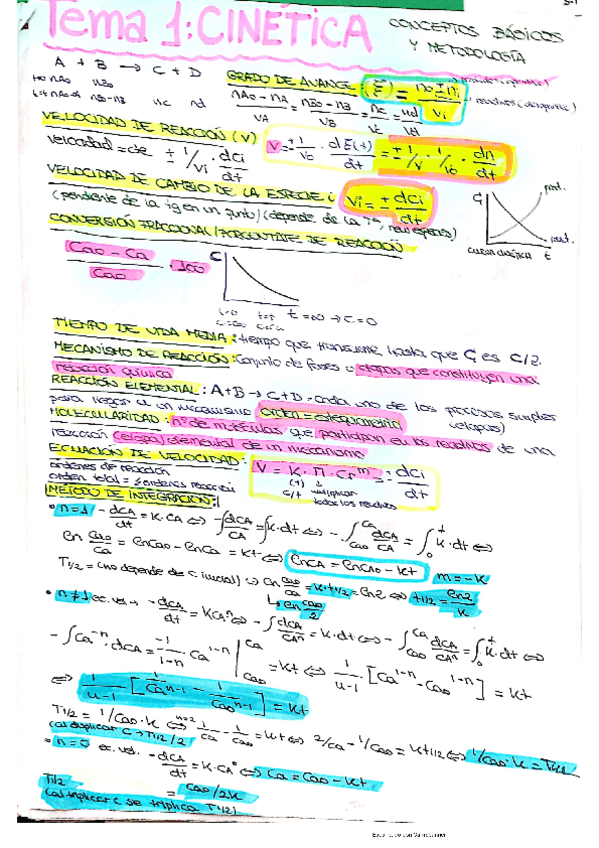 Tema 1: CINÉTICA CONCEPTOS BÁSICOS
Y METODOLOGÍA
A + B → C + D
GRADO DE AVANCE (ξ) =
nAo - nA / VA = nBo - nB / VB = nc / Vc
VELOCIDAD DE REACCIÓN (V)
velocidad = cte ± 1/Vi · dci/dt
VELOCIDAD DE CAMBIO DE LA ESPECIE i Vi = ± dci/dt
(pendiente de la tg en un punto) (depende de la
CONVERSIÓN FRACCIONAL / PORCENTAJE DE REACCIÓN
CAo - CA / CAo · 100
C
t = ∞ → C = 0
CURVA CINÉTICA t
TIEMPO DE VIDA MEDIA: tiempo que transcurre hasta que Ci es C/2.
MECANISMO DE REACCIÓN: Conjunto de fases o etapas que constituyen una
reacción química
REACCIÓN ELEMENTAL: A+B → C+D. Cada uno de los procesos simples
para llegar a un mecanismo orden = estequiometría (etapas)
MOLECULARIDAD: nº de moléculas que participan en los reactivos de una
reacción (etapa) elemental de un mecanismo
ECUACIÓN DE VELOCIDAD: V = K · Π · Ci^m = dci/dt
órdenes de reacción
orden total = Σ órdenes reacción
multiplicar
todos los reactivos
MÉTODO DE INTEGRACIÓN:
• n=1 - dCA/dt = K·CA ⇔ -∫dCA/CA = ∫K·dt ⇔ -∫CAo^CA dCA/CA = ∫0^t K·dt ⇔
ln CAo/CA = lnCAo - lnCA = Kt ⇔ lnCA = lnCAo - Kt m = -K
T1/2 = (no depende de C inicial) ln = K·t1/2 = ln2 ⇔ t1/2 = ln2/K
• n≠1 ec. vel → -dCA/dt = KCA^n ⇔ -∫dCA/CA^n = ∫K·dt ⇔ -∫CAo^CA dCA/CA^n = ∫0^t K·dt ⇔
-∫CA^-n · dCA = -1/1-n · CA^1-n |CAo^CA = Kt ⇔ 1/n-1 · [CA^1-n - CAo^1-n] = Kt
⇔ 1/n-1 [1/CA^n-1 - 1/CAo^n-1] = Kt
T1/2 = 1/CAo·K n=2 1/CA - 1/CAo = Kt ⇔ 2/CA - 1/CAo = Kt1/2 ⇔ 1/CAo·K = T1/2
(al duplicar C → T1/2 / 2)
• n=0 ec. vel. -dCA/dt = K·CA° ⇔ CA = CAo - Kt
T1/2 = CAo/2K
(al triplicar C se triplica T1/2)